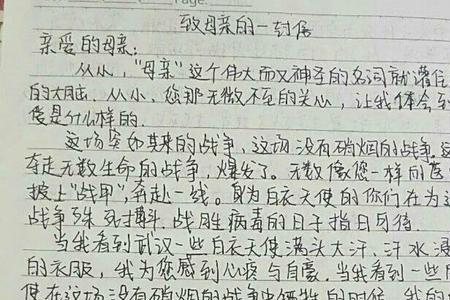 Page.
致母亲的一封信
亲爱的母亲：
从小，“母亲”这个伟大而又神圣的名词就灌住
的大脑．从小，您那无微不至的关心，让我体会到
爱是什么样的．
这场突如其来的战争，这场没有硝烟的战争，这
夺走无数生命的战争，爆发了。无数像您一样的医
披上“战甲”，奔赴一线。身为白衣天使的你们在为这
战争殊死搏斗．战胜病毒的日子指日可待．
当我看到武汉一些白衣天使满头大汗，汗水浸
的衣服，我为您感到心疼与自豪．当我看到一些
使在这场没有硝烟的战争中牺牲的时候，我的